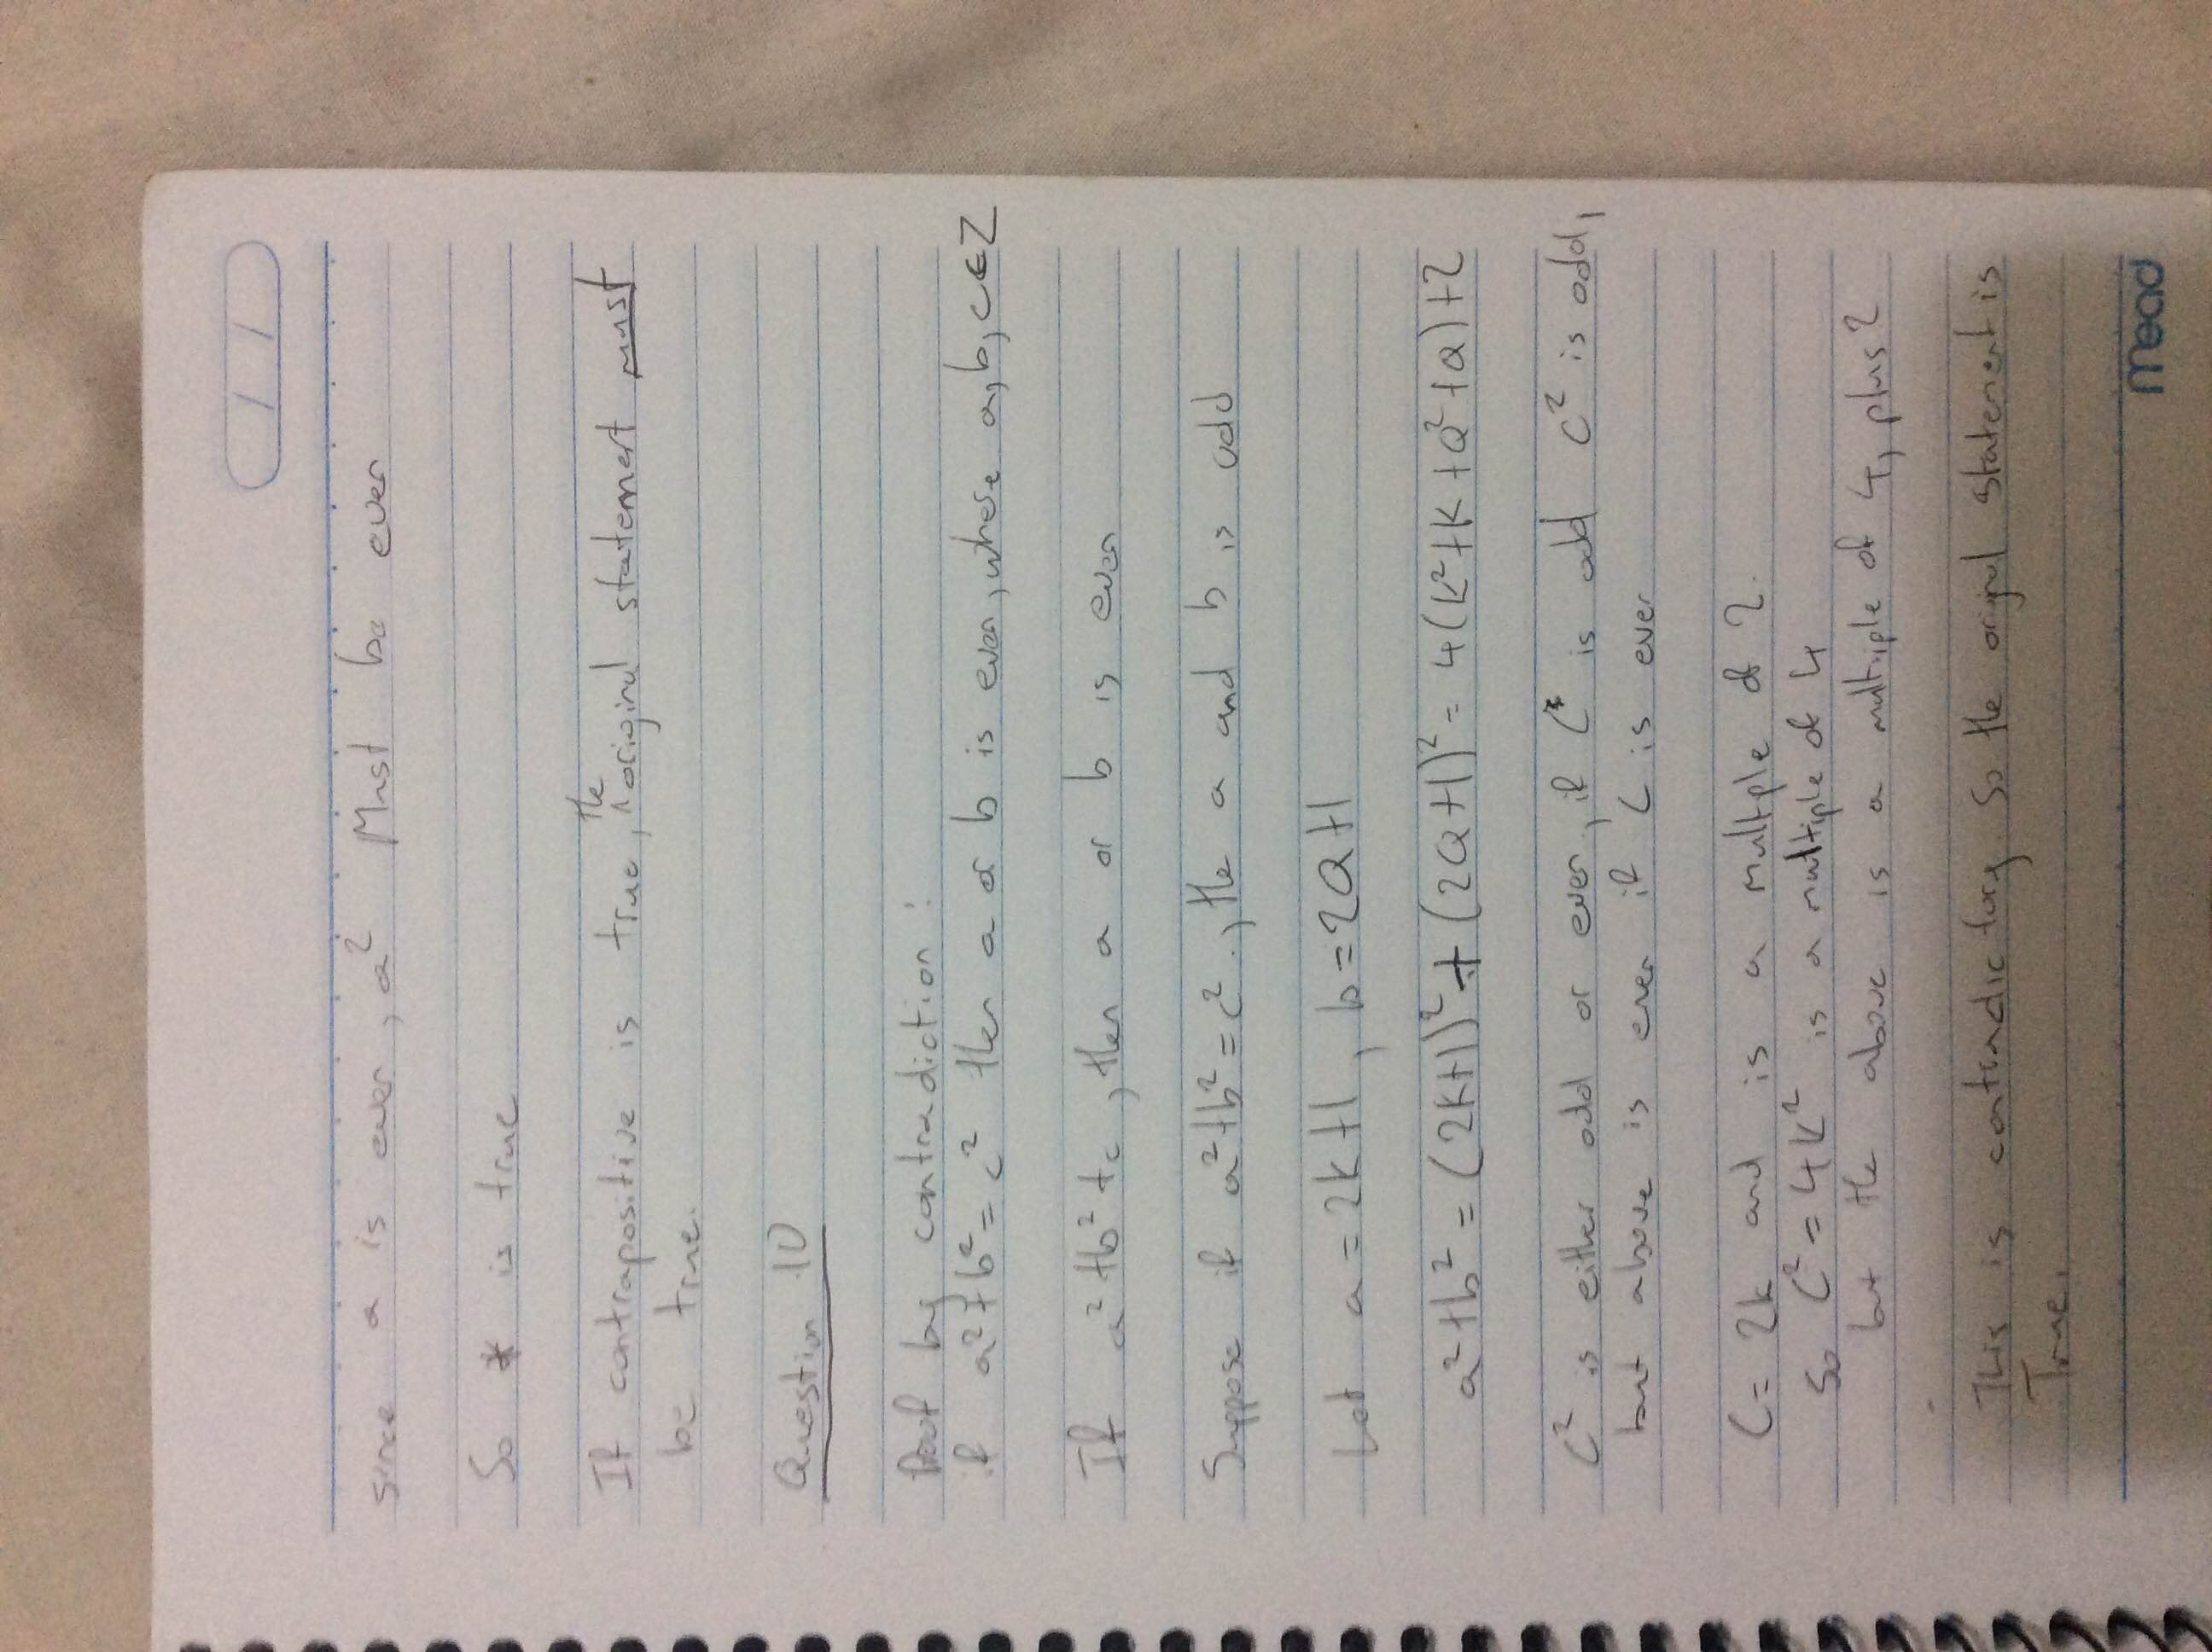 since a is even, a² Must be even
So * is true
If contrapositive is true, the original statement must
be true.
Question 10
Proof by contradiction:
if a²+b²=c² then a or b is even, where a, b, c∈Z
If a²+b²+c, then a or b is even
Suppose if a²+b²=c²., the a and b is odd
Let a=2k+1, b=2Q+1
a²+b² = (2k+1)² + (2Q+1)² = 4(k²+k+Q²+Q)+2
C² is either odd or even, if C is odd C² is odd,
but above is even if C is even
C= 2k and is a multple of 2.
so C²=4k² is a multiple of 4
but the above is a multiple of 4, plus 2
This is contradictory. So the original statement is
True.
Mead